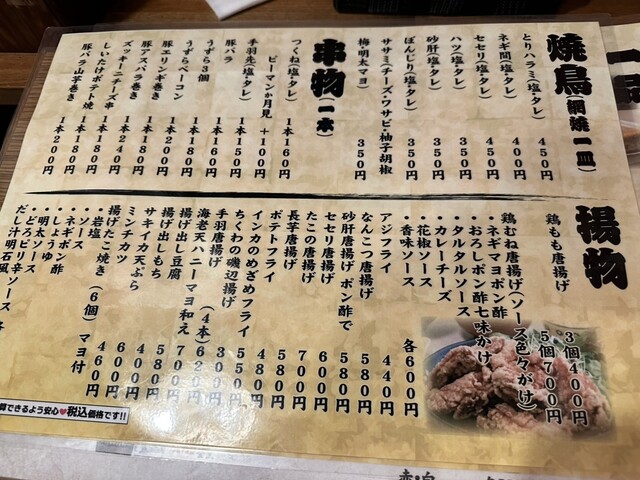 焼鳥(網焼一皿)
とりハラミ(塩・タレ) 450円
ネギ間(塩・タレ) 400円
セセリ(塩・タレ) 450円
ハツ(塩・タレ) 350円
砂肝(塩・タレ) 350円
ぼんじり(塩・タレ) 350円
ササミ(チーズ・ワサビ・柚子胡椒
梅・明太マヨ) 350円
串物(一本)
つくね(塩・タレ) 1本160円
ピーマンか月見 +100円
手羽先(塩・タレ) 1本160円
豚バラ 1本180円
うずら3個 1本150円
うずらベーコン 1本180円
豚エリンギ巻き 1本200円
豚アスパラ巻き 1本180円
ズッキーニチーズ串 1本240円
しいたけポテト焼 1本180円
豚バラ山芋巻き 1本200円
揚物
鶏もも唐揚げ 3個400円
5個700円
鶏むね唐揚げ(ソース色々がけ)
・ネギマヨポン酢
・おろしポン酢七味かけ
・タルタルソース
・カレーチーズ
・花椒ソース
・香味ソース 各600円
アジフライ 440円
なんこつ唐揚げ 580円
砂肝唐揚げ ポン酢で 580円
セセリ唐揚げ 600円
たこの唐揚げ 700円
長芋唐揚げ 500円
ポテトフライ 480円
インカのめざめフライ 550円
ちくわの磯辺揚げ 500円
手羽唐揚げ (4本) 620円
海老天ハニーマヨ和え 700円
揚げ出し豆腐 580円
揚げ出しもち 400円
サキイカ天ぷら 450円
ミンチカツ 600円
揚げたこ焼き(6個) マヨ付 460円
・岩塩
・ソース
・ネギポン酢
・しょうゆ
・明太ソース
・どろピリ辛ソース
だし汁明石風 各
できるよう安心♥税込価格です!!